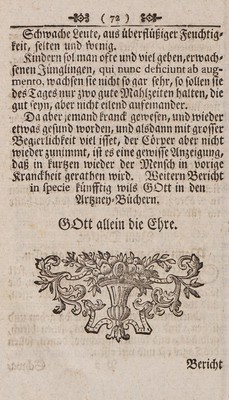 ( 72 )
Schwache Leute, aus überflüßiger Feuchtig-
keit, selten und wenig.
Kindern sol man offt und viel geben, erwach-
senen Jünglingen, qui nunc deficiunt ab aug-
mento, wachsen sie nicht so gar sehr, so sollen sie
des Tages nur zwo gute Mahlzeiten halten, die
gut seyn, aber nicht eilend aufeinander.
Da aber jemand kranck gewesen, und wieder
etwas gesund worden, und alsdann mit grosser
Begierlichkeit viel isset, der Cörper aber nicht
wieder zunimmt, ist es eine gewisse Anzeigung,
daß in kurtzen wieder der Mensch in vorige
Kranckheit gerathen wird. Weitern Bericht
in specie künfftig wils GOtt in den
Artzney-Büchern.
GOtt allein die Ehre.
Bericht